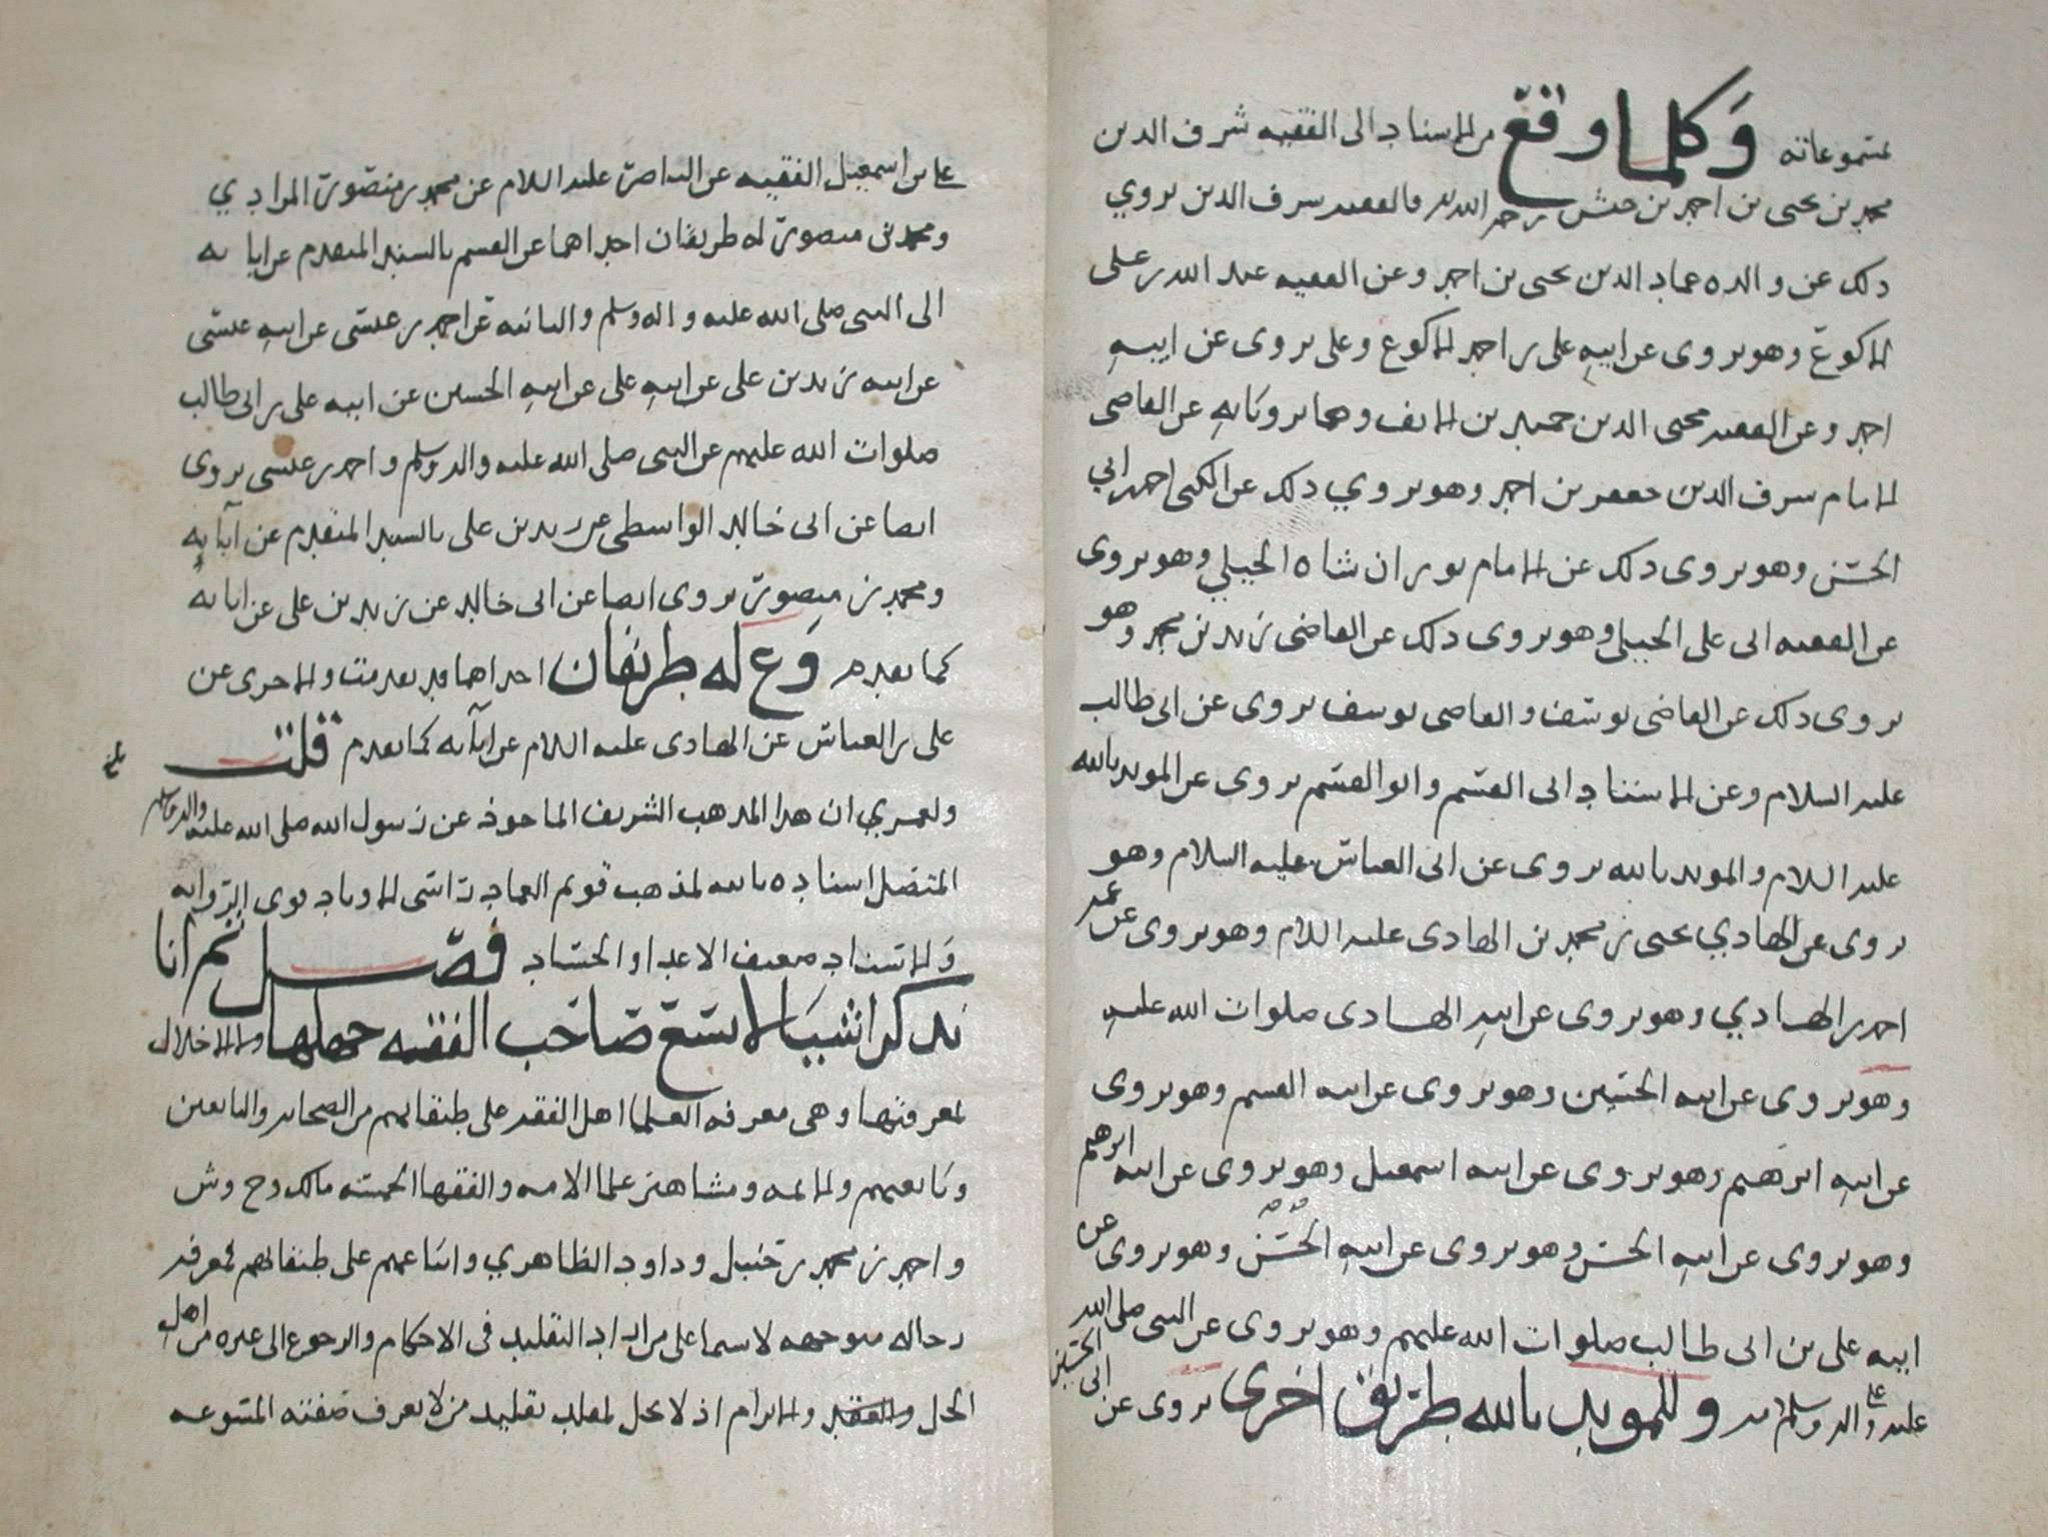 وكلما وقع من الاسناد الى الفقيه شرف الدين
محمد بن يحيى بن احمد بن حنش رحمه الله فالفقيه شرف الدين يروي
ذلك عن والده عماد الدين يحيى بن احمد وعن الفقيه عبد الله بن علي
الاكوع وهو يروى عن ابيه على بن احمد الاكوع وعلى يروى عن ابيهِ
احمد وعن الفقيه محيى الدين حميد بن الانف وهما يرويانه عن القاضى
الامام شرف الدين جعفر بن احمد وهو يروي ذلك عن الكنى احمد ابي
الحسن وهو يروى ذلك عن الامام توران شاه الجيلي وهو يروى
عن الفقيه ابى على الجيلى وهو يروى ذلك عن القاضى زيد بن محمد وهو
يروى ذلك عن القاضى يوسف والقاضى يوسف يروى عن ابى طالب
عليه السلام وعن الاستاد ابى القسم وابو القسم يروى عن المويد بالله
عليه السلام والمويد بالله يروى عن ابى العباس عليه السلام وهو
يروى عن الهادي يحيى بن محمد بن الهادى عليه السلام وهو يروى عن عمه
احمد بن الهادي وهو يروى عن ابيه الهادى صلوات الله عليه
وهو يروى عن ابيه الحسين وهو يروى عن ابيه القسم وهو يروى
عن ابيه ابرهيم وهو يروى عن ابيه اسمعيل وهو يروى عن ابيه ابرهيم
وهو يروى عن ابيهِ الحسن وهو يروى عن ابيهِ الحسن وهو يروى عن
ابيه على بن ابى طالب صلوات الله عليهم وهو يروى عن النبى صلى الله
عليه وعلى اله وسلم وللمويد بالله طريق اخرى يروى عن ابى الحسين
على بن اسمعيل الفقيه عن الناصر عليه السلام عن محمد بن منصور المرادي
ومحمد بن منصور له طريقان احداهما عن القسم بالسند المتقدم عن ابايه
الى النبى صلى الله عليه واله وسلم والثانيه عن احمد بن عيسى عن ابيهِ عيسى
عن ابيه زيد بن على عن ابيهِ على عن ابيهِ الحسين عن ابيه على بن ابى طالب
صلوات الله عليهم عن النبى صلى الله عليه واله وسلم واحمد بن عيسى يروى
ايضا عن ابى خالد الواسطى عن زيد بن على بالسند المتقدم عن آبايهِ
ومحمد بن منصور يروى ايضا عن ابى خالد عن زيد بن على عن ابايه
كما تقدم وع له طريقان احداهما قد تقدمت والاخرى عن
على بن العباس عن الهادى عليه السلام عن ابآيه كما تقدم قلت
ولعمري ان هذا المذهب الشريف الماخوذ عن رسول الله صلى الله عليه واله وسلم
المتصل اسناده بالله لمذهب قويم العماد راسى الاوتاد قوى الروايه
والاسناد مضعف الاعدا والحساد فصل ثم انا
نذكر اشيا لا يسع صاحب الفقه جهلها ولا الاخلال
بمعرفتها وهى معرفه العلما اهل الفقه على طبقاتهم من الصحابه والتابعين
وتابعيهم والايمه ومشاهير علما الامه والفقها الخمسه مالك وح وش
واحمد بن محمد بن حنبل وداود الظاهري واتباعهم على طبقاتهم لمعرفه
رجاله متوجهه لاسيما على من اراد التقليد فى الاحكام والرجوع الى غيره من اهل
الحل والعقد والابرام اذ لا يحل لمقلد تقليد من لا يعرف صفته المتنوعه